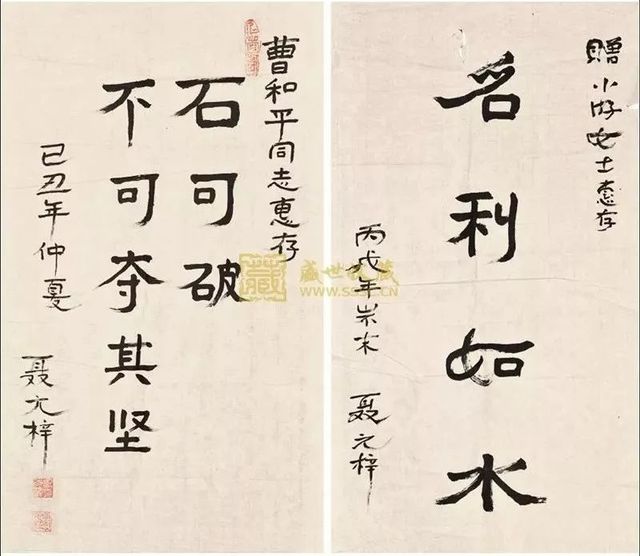 曹和平同志惠存
石可破
不可夺其坚
己丑年仲夏
聂元梓
赠小女士惠存
名利如水
丙戌年岁末 聂元梓
藏
盛世收藏
WWW.SSSC.CN